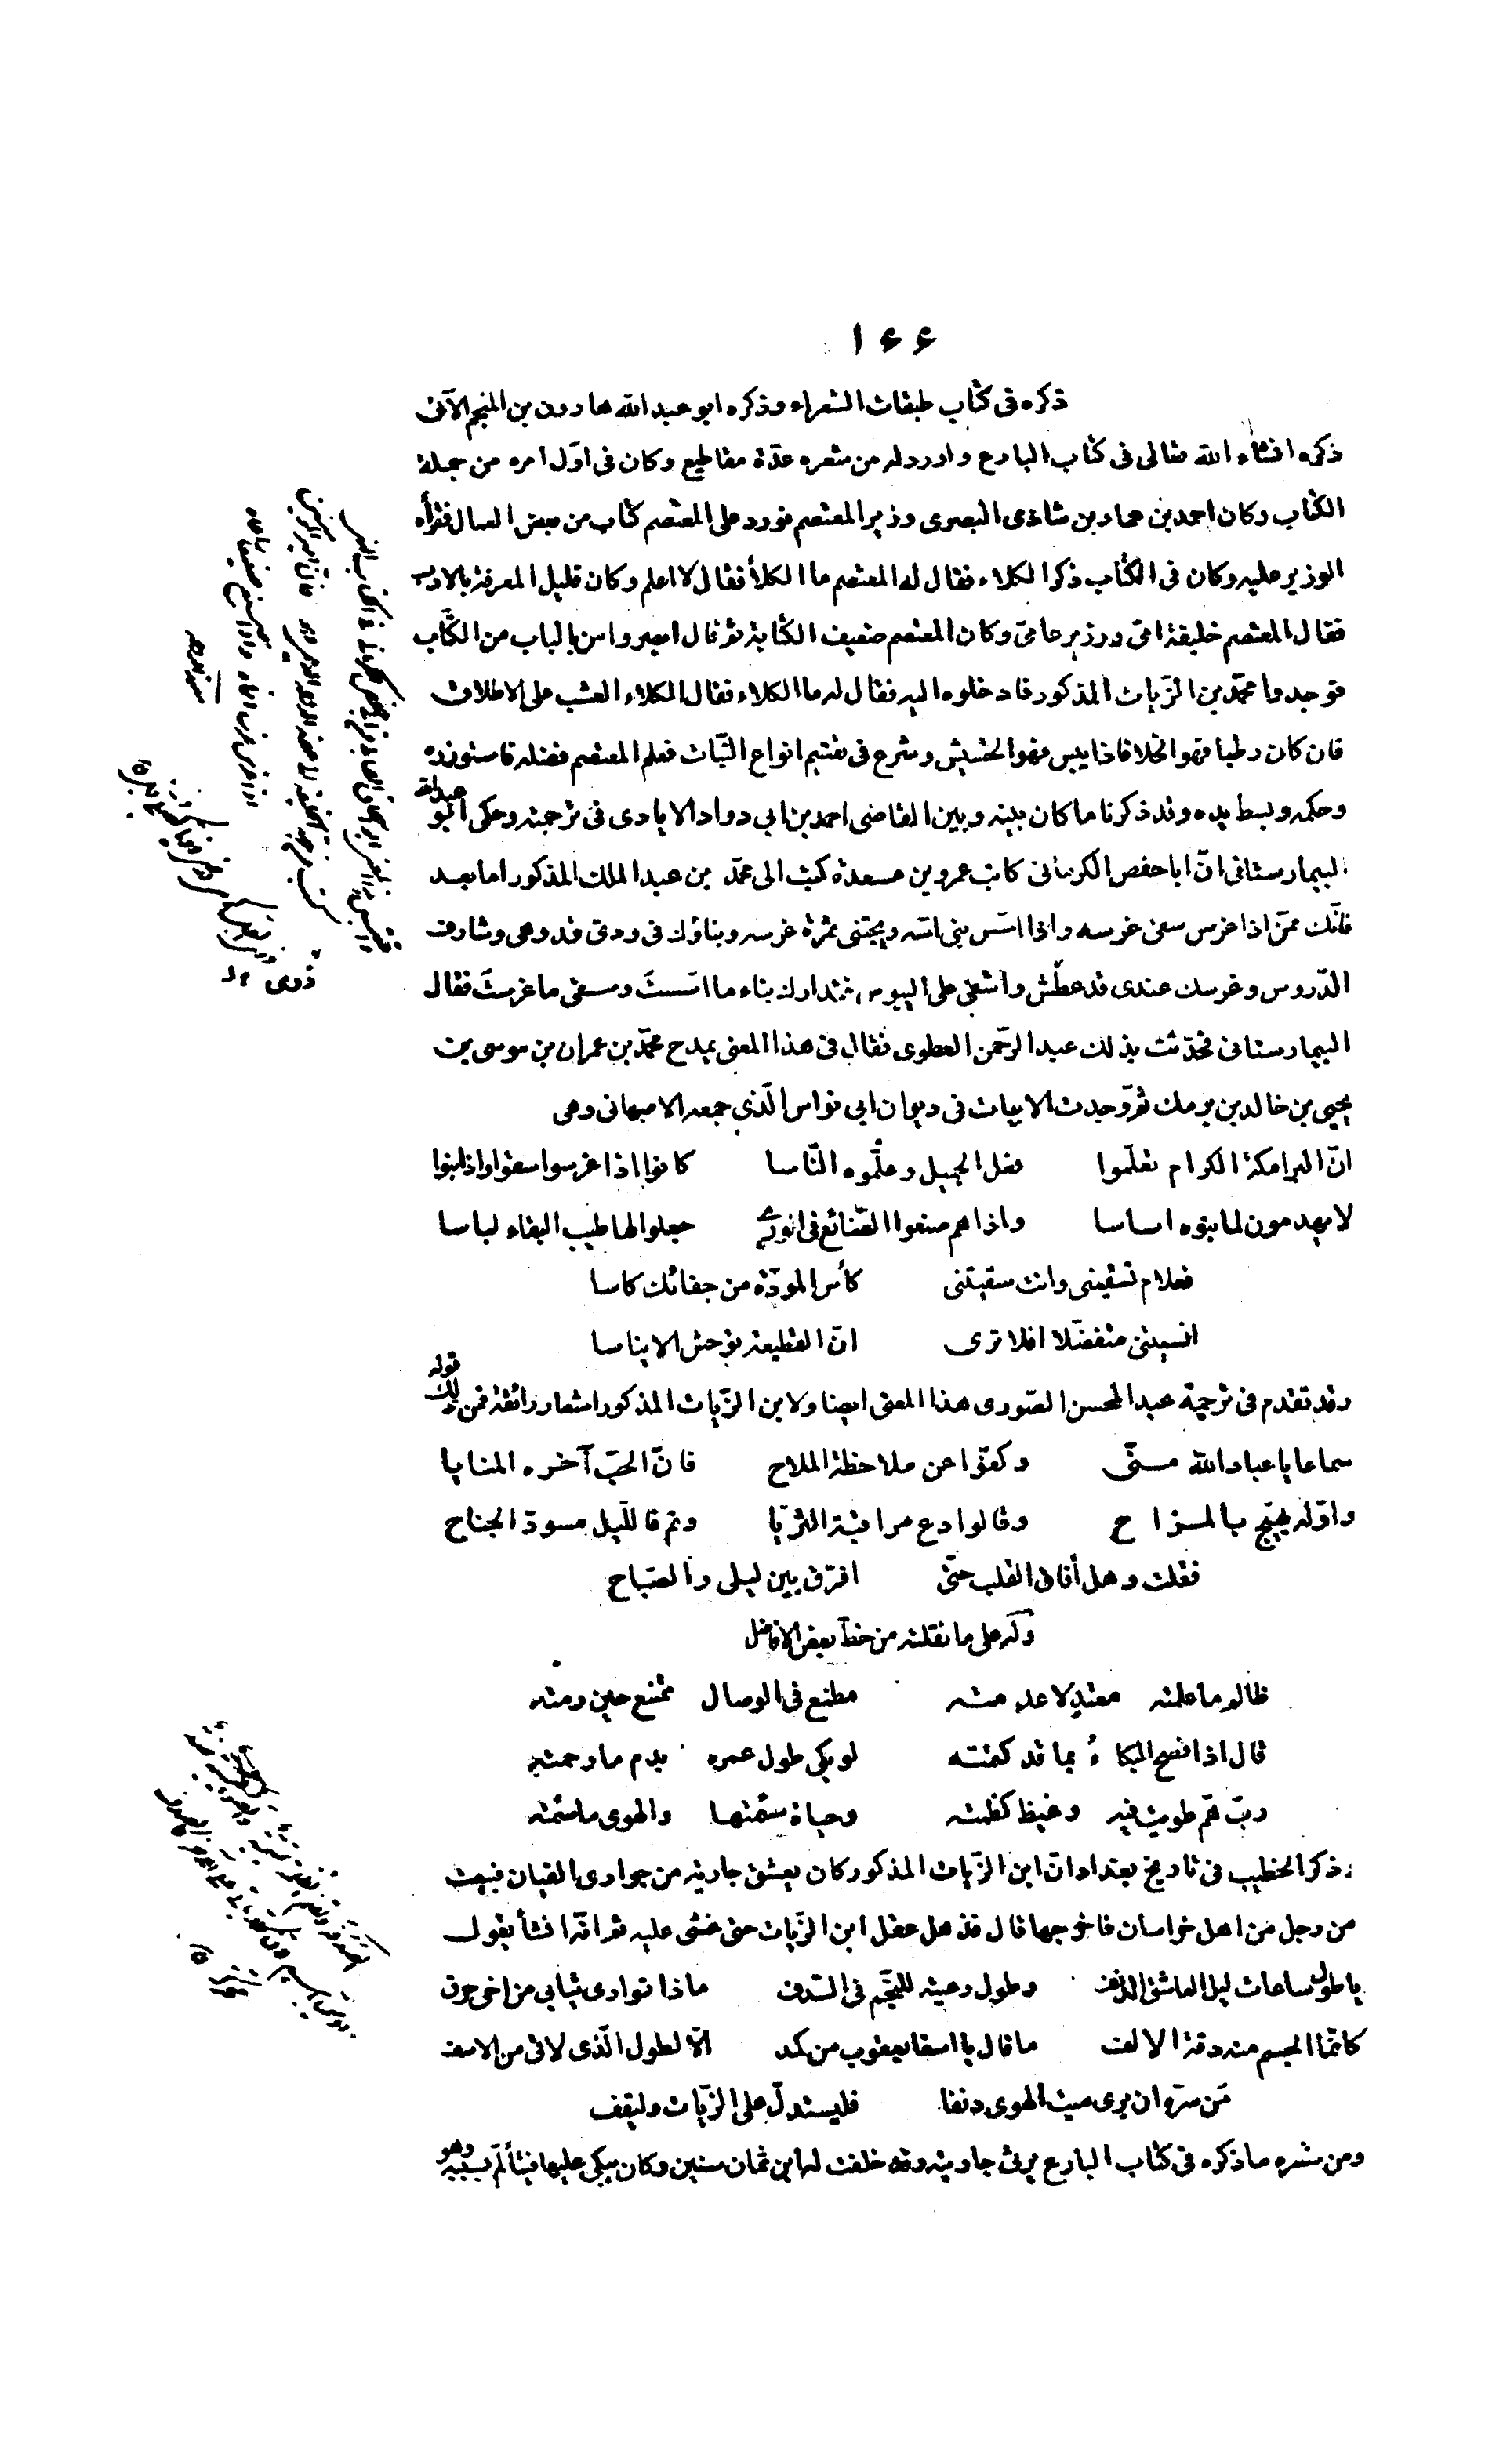 ١٦٦
ذكره فى كتاب طبقات الشعراء وذكره ابو عبد الله هارون بن المنجم الآتى
ذكره انشاء الله تعالى فى كتاب البارع واورد له من شعره عدّة مقاطيع وكان فى اوّل امره من جملة
الكتاب وكان احمد بن عمار بن شاذى البصرى وزير المعتصم فورد على المعتصم كتاب من بعض العمال فقرأه
الوزير عليه وكان فى الكتاب ذكر الكلاء فقال له المعتصم ما الكلأ فقال لا اعلم وكان قليل المعرفة بالادب
فقال المعتصم خليفة امّى ووزير عامىّ وكان المعتصم ضعيف الكتابة ثم قال ابصروا من بالباب من الكتّاب
فوجدوا محمّد بن الزيّات المذكور فادخلوه اليه فقال له ما الكلاء فقال الكلاء العشب على الاطلاق
فان كان رطبا فهو الخلا فاذا يبس فهو الحشيش وشرع فى تقسيم انواع النّبات فعلم المعتصم فضله فاستوزره
وحكمه وبسط يده وقد ذكرنا ما كان بينه وبين القاضى احمد بن ابى دواد الايادى فى ترجمته وحكى ابو عبد الله
البيمارستانى انّ ابا حفص الكرمانى كاتب عمرو بن مسعدة كتب الى محمّد بن عبد الملك المذكور اما بعد
فانّك ممّن اذا غرس سقى غرسه واذا اسّس بنى اسّه ويجتنى ثمرة غرسه وبناؤك فى ودى قد وهى وشارف
الدّروس وغرسك عندى قد عطش واشفى على اليبوس فتدارك بناء ما اسّستَ وسقى ما غرستَ فقال
البيمارستانى فحدّثت بذلك عبد الرّحمن العطوى فقال فى هذا المعنى يمدح محمّد بن عمران بن موسى بن
يحيى بن خالد بن برمك ثمّ وجدت الابيات فى ديوان ابى نواس الّذى جمعه الاصبهانى وهى
انّ البرامكة الكرام تعلّموا فعل الجميل وعلّموه النّاسا كانوا اذا غرسوا سقوا واذا بنوا
لا يهدمون لما بنوه اساسا واذا هم صنعوا الصّنائع فى الورى جعلوا لها طيب البقاء لباسا
فعلام تسقينى وانت سقيتنى كأس المودّة من جفائك كاسا
انسيتنى متفضّلا افلا ترى انّ القطيعة توحش الايناسا
وقد تقدم فى ترجمة عبد المحسن الصّورى هذا المعنى ايضا ولابن الزّيات المذكور اشعار رائقة فمن ذلك قوله
سماعا يا عباد الله منّى وكفّوا عن ملاحظة الملاح فانّ الحبّ آخره المنايا
واوّله يهيّج بالمزاح وقالوا دع مراقبة الثريّا ونم فاللّيل مسودّ الجناح
فقلت وهل أفاق القلب حتّى افرّق بين ليلى والصّباح
وله على ما نقلته من خطّ بعض الافاضل
ظالم ما علمته معتدٍ لا عدمته مطمع فى الوصال ممتنع حين رمته
قال اذ افصح البكاءُ بما قد كتمته لو بكى طول عمره بدم ما رحمته
ربّ همّ طويت فيه وغيظ كظمته وحياة سئمتها والهوى ما سئمته
وذكر الخطيب فى تاريخ بغداد انّ ابن الزّيات المذكور كان يعشق جارية من جوارى القيان فبيعت
من رجل من اهل خراسان فاخرجها قال فذهل عقل ابن الزّيات حتى غشى عليه ثم انّه انشأ يقول
يا طول ساعات ليل العاشق الدنف وطول رعيته للنّجم فى السّدف ماذا توارى ثيابى من اخى حرق
كانّما الجسم منه دقة الالف ما قال يا اسفا يعقوب من كمد الّا لطول الّذى لاقى من الاسف
مَن سرّه ان يرى ميت الهوى دنفا فليستدلّ على الزّيات وليقف
ومن شعره ما ذكره فى كتاب البارع يرثى جاريته وقد خلفت له ابن ثمان سنين وكان يبكى عليها فيتألم بسببه وهو